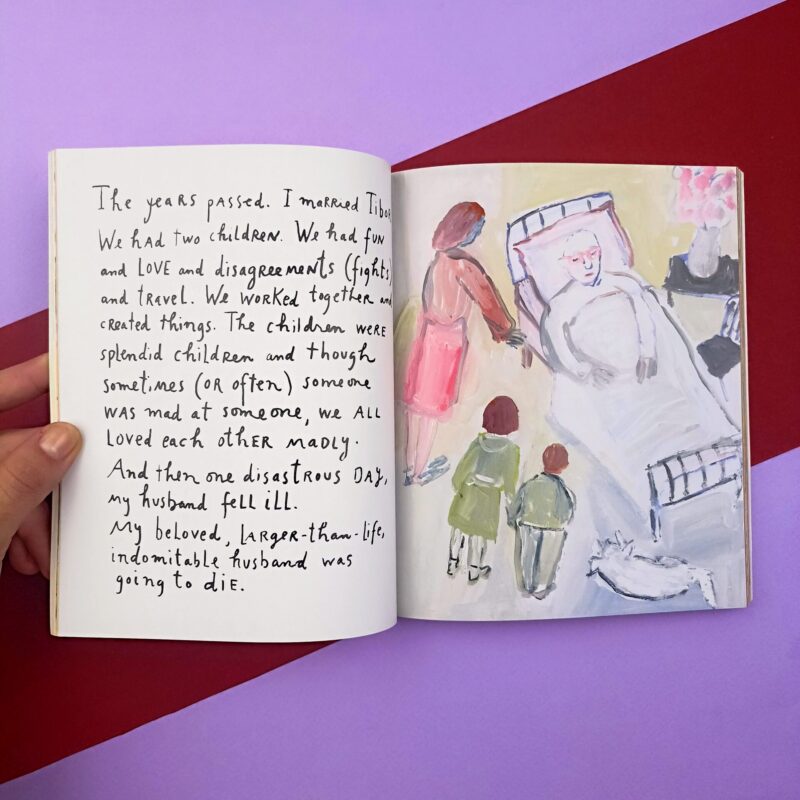 The years passed. I married Tibor
We had two children. We had fun
and love and disagreements (fights)
and travel. We worked together and
created things. The children were
splendid children and though
sometimes (or often) someone
was mad at someone, we all
loved each other madly.
And then one disastrous day,
my husband fell ill.
My beloved, larger-than-life,
indomitable husband was
going to die.